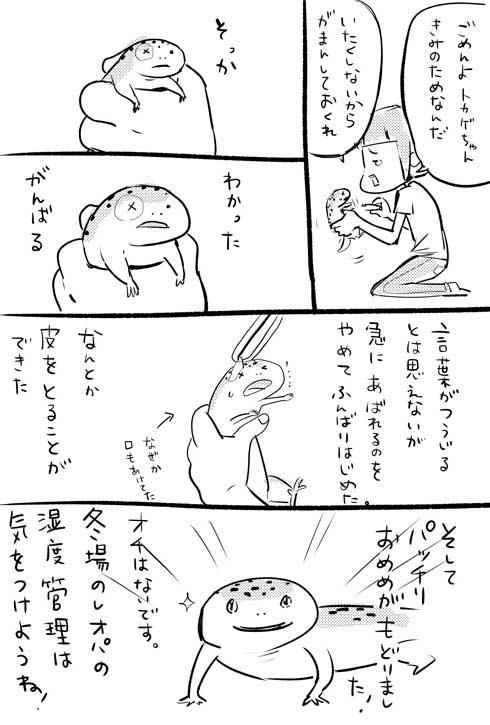 ごめんよ トカゲちゃん
きみのためなんだ
いたくしないから
がまんしておくれ
そっか
わかった
がんばる
言葉がつうじる
とは思えないが
急に あばれるのを
やめて ふんばりはじめた。
なぜか
口もあけてた
なんとか
皮をとることが
できた
そして
パッチリ
おめめがもどりまし
た！
オチはないです。
冬場のレオパの
湿度管理は
気をつけようね！